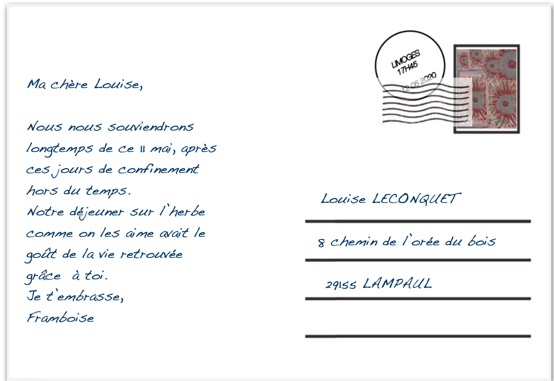 LIMOGES
17H45
12.05.2020
Ma chère Louise,
Nous nous souviendrons
longtemps de ce 11 mai, après
ces jours de confinement
hors du temps.
Notre déjeuner sur l'herbe
comme on les aime avait le
goût de la vie retrouvée
grâce à toi.
Je t'embrasse,
Framboise
Louise LECONQUET
8 chemin de l'orée du bois
29155 LAMPAUL